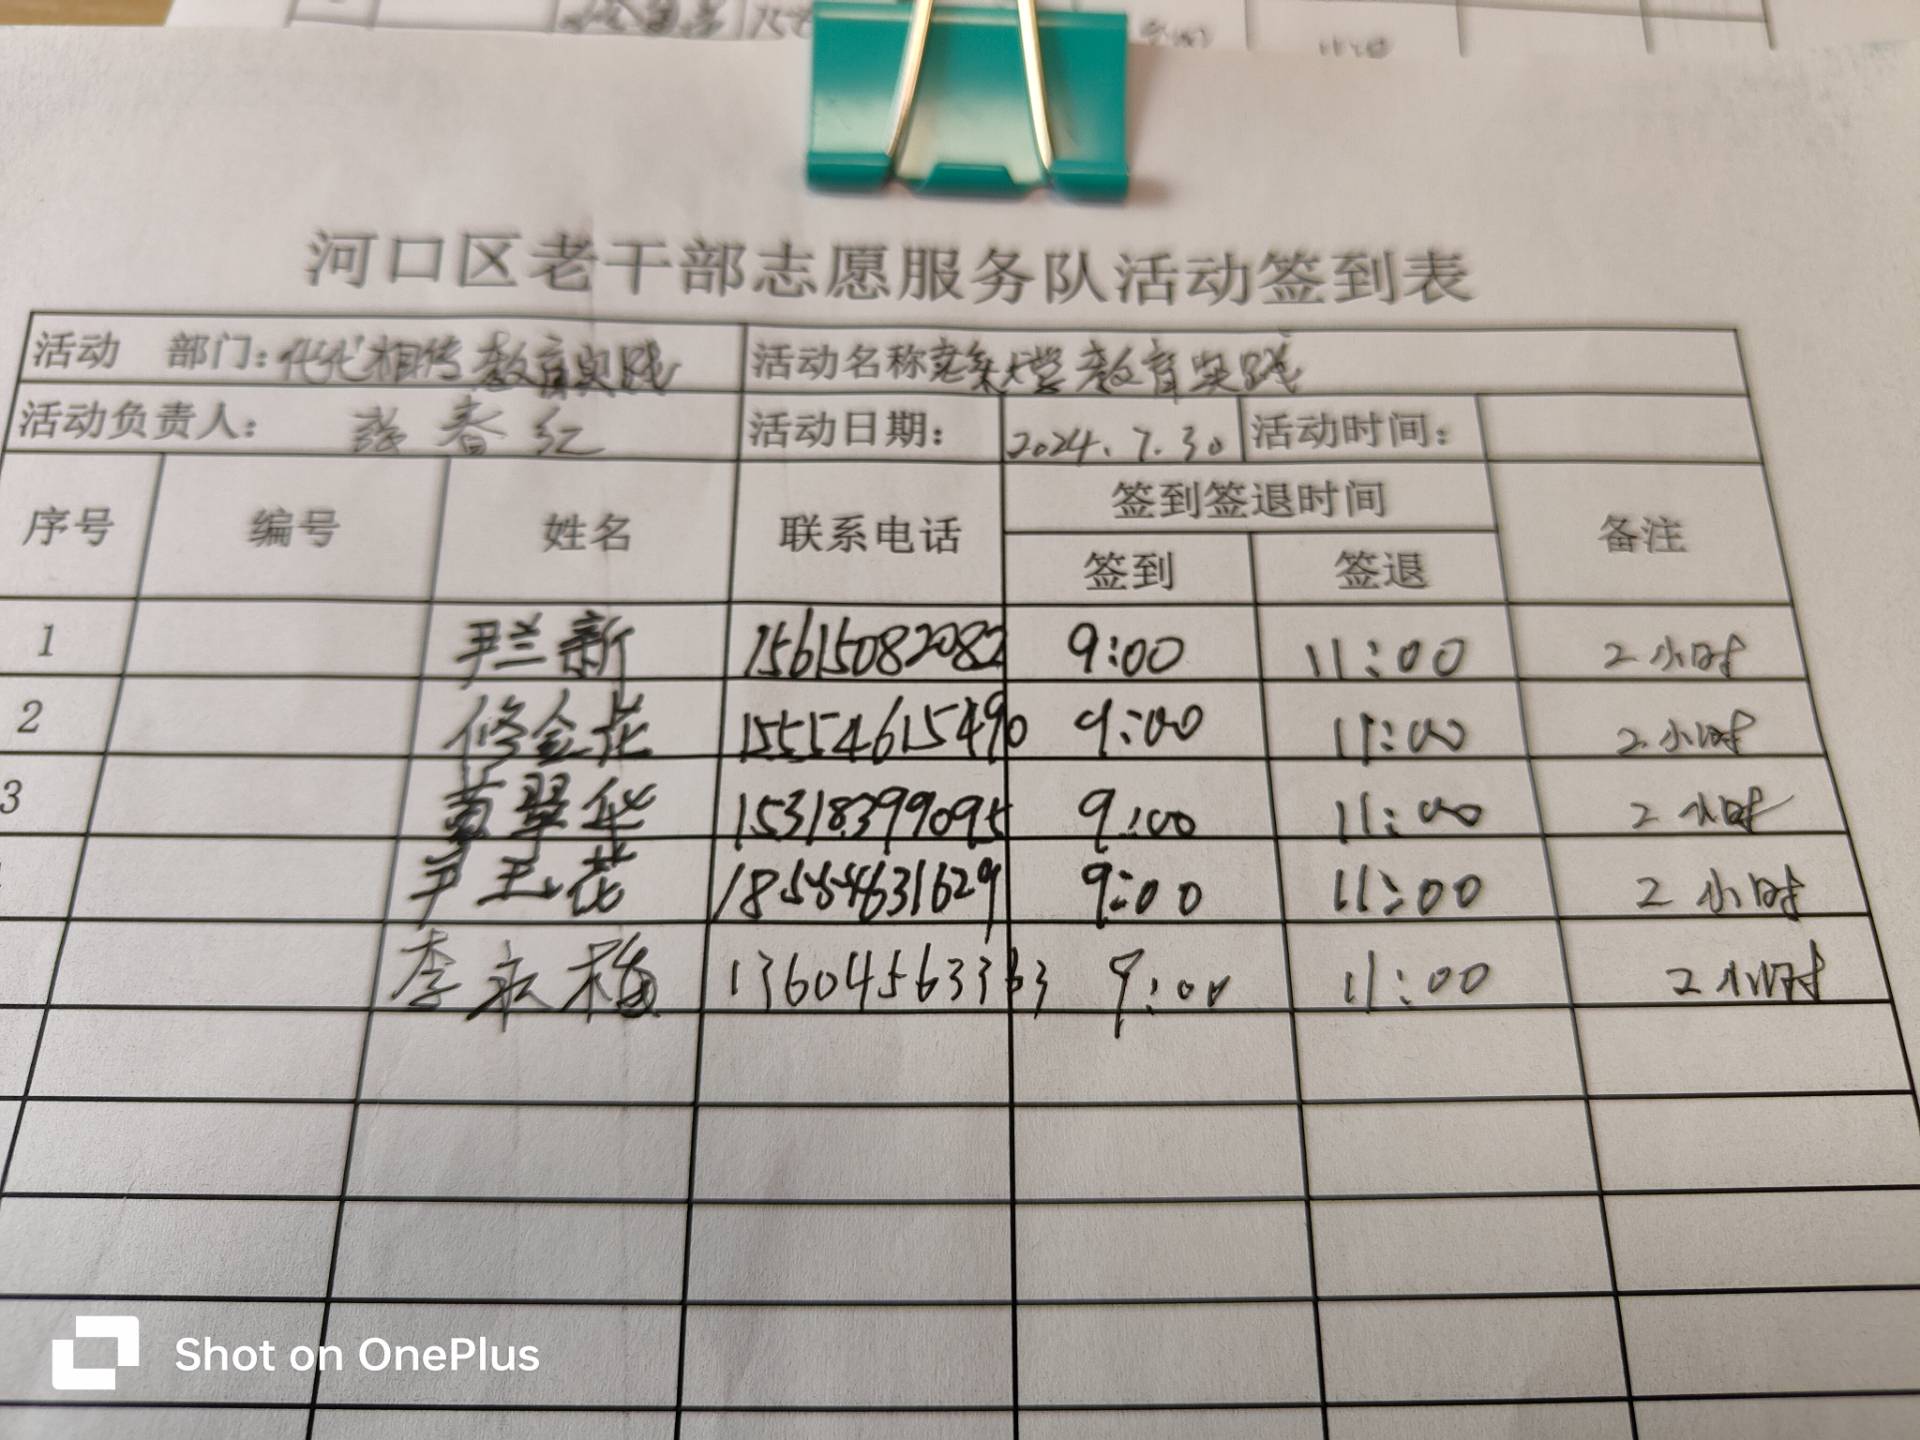 河口区老干部志愿服务队活动签到表
活动 部门：代代相传教育实践 活动名称 老年大学教育实践
活动负责人： 张春红 活动日期： 2024.7.30 活动时间：
序号 编号 姓名 联系电话 签到签退时间 备注
签到 签退
1 尹兰新 15615082082 9:00 11:00 2小时
2 修金花 15554615490 9:00 11:00 2小时
3 黄翠华 15318399095 9:00 11:00 2小时
尹玉花 18554631629 9:00 11:00 2小时
李永梅 13604563363 9:00 11:00 2小时
Shot on OnePlus